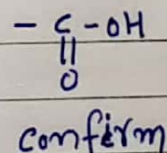 - C - OH
||
O
confirm